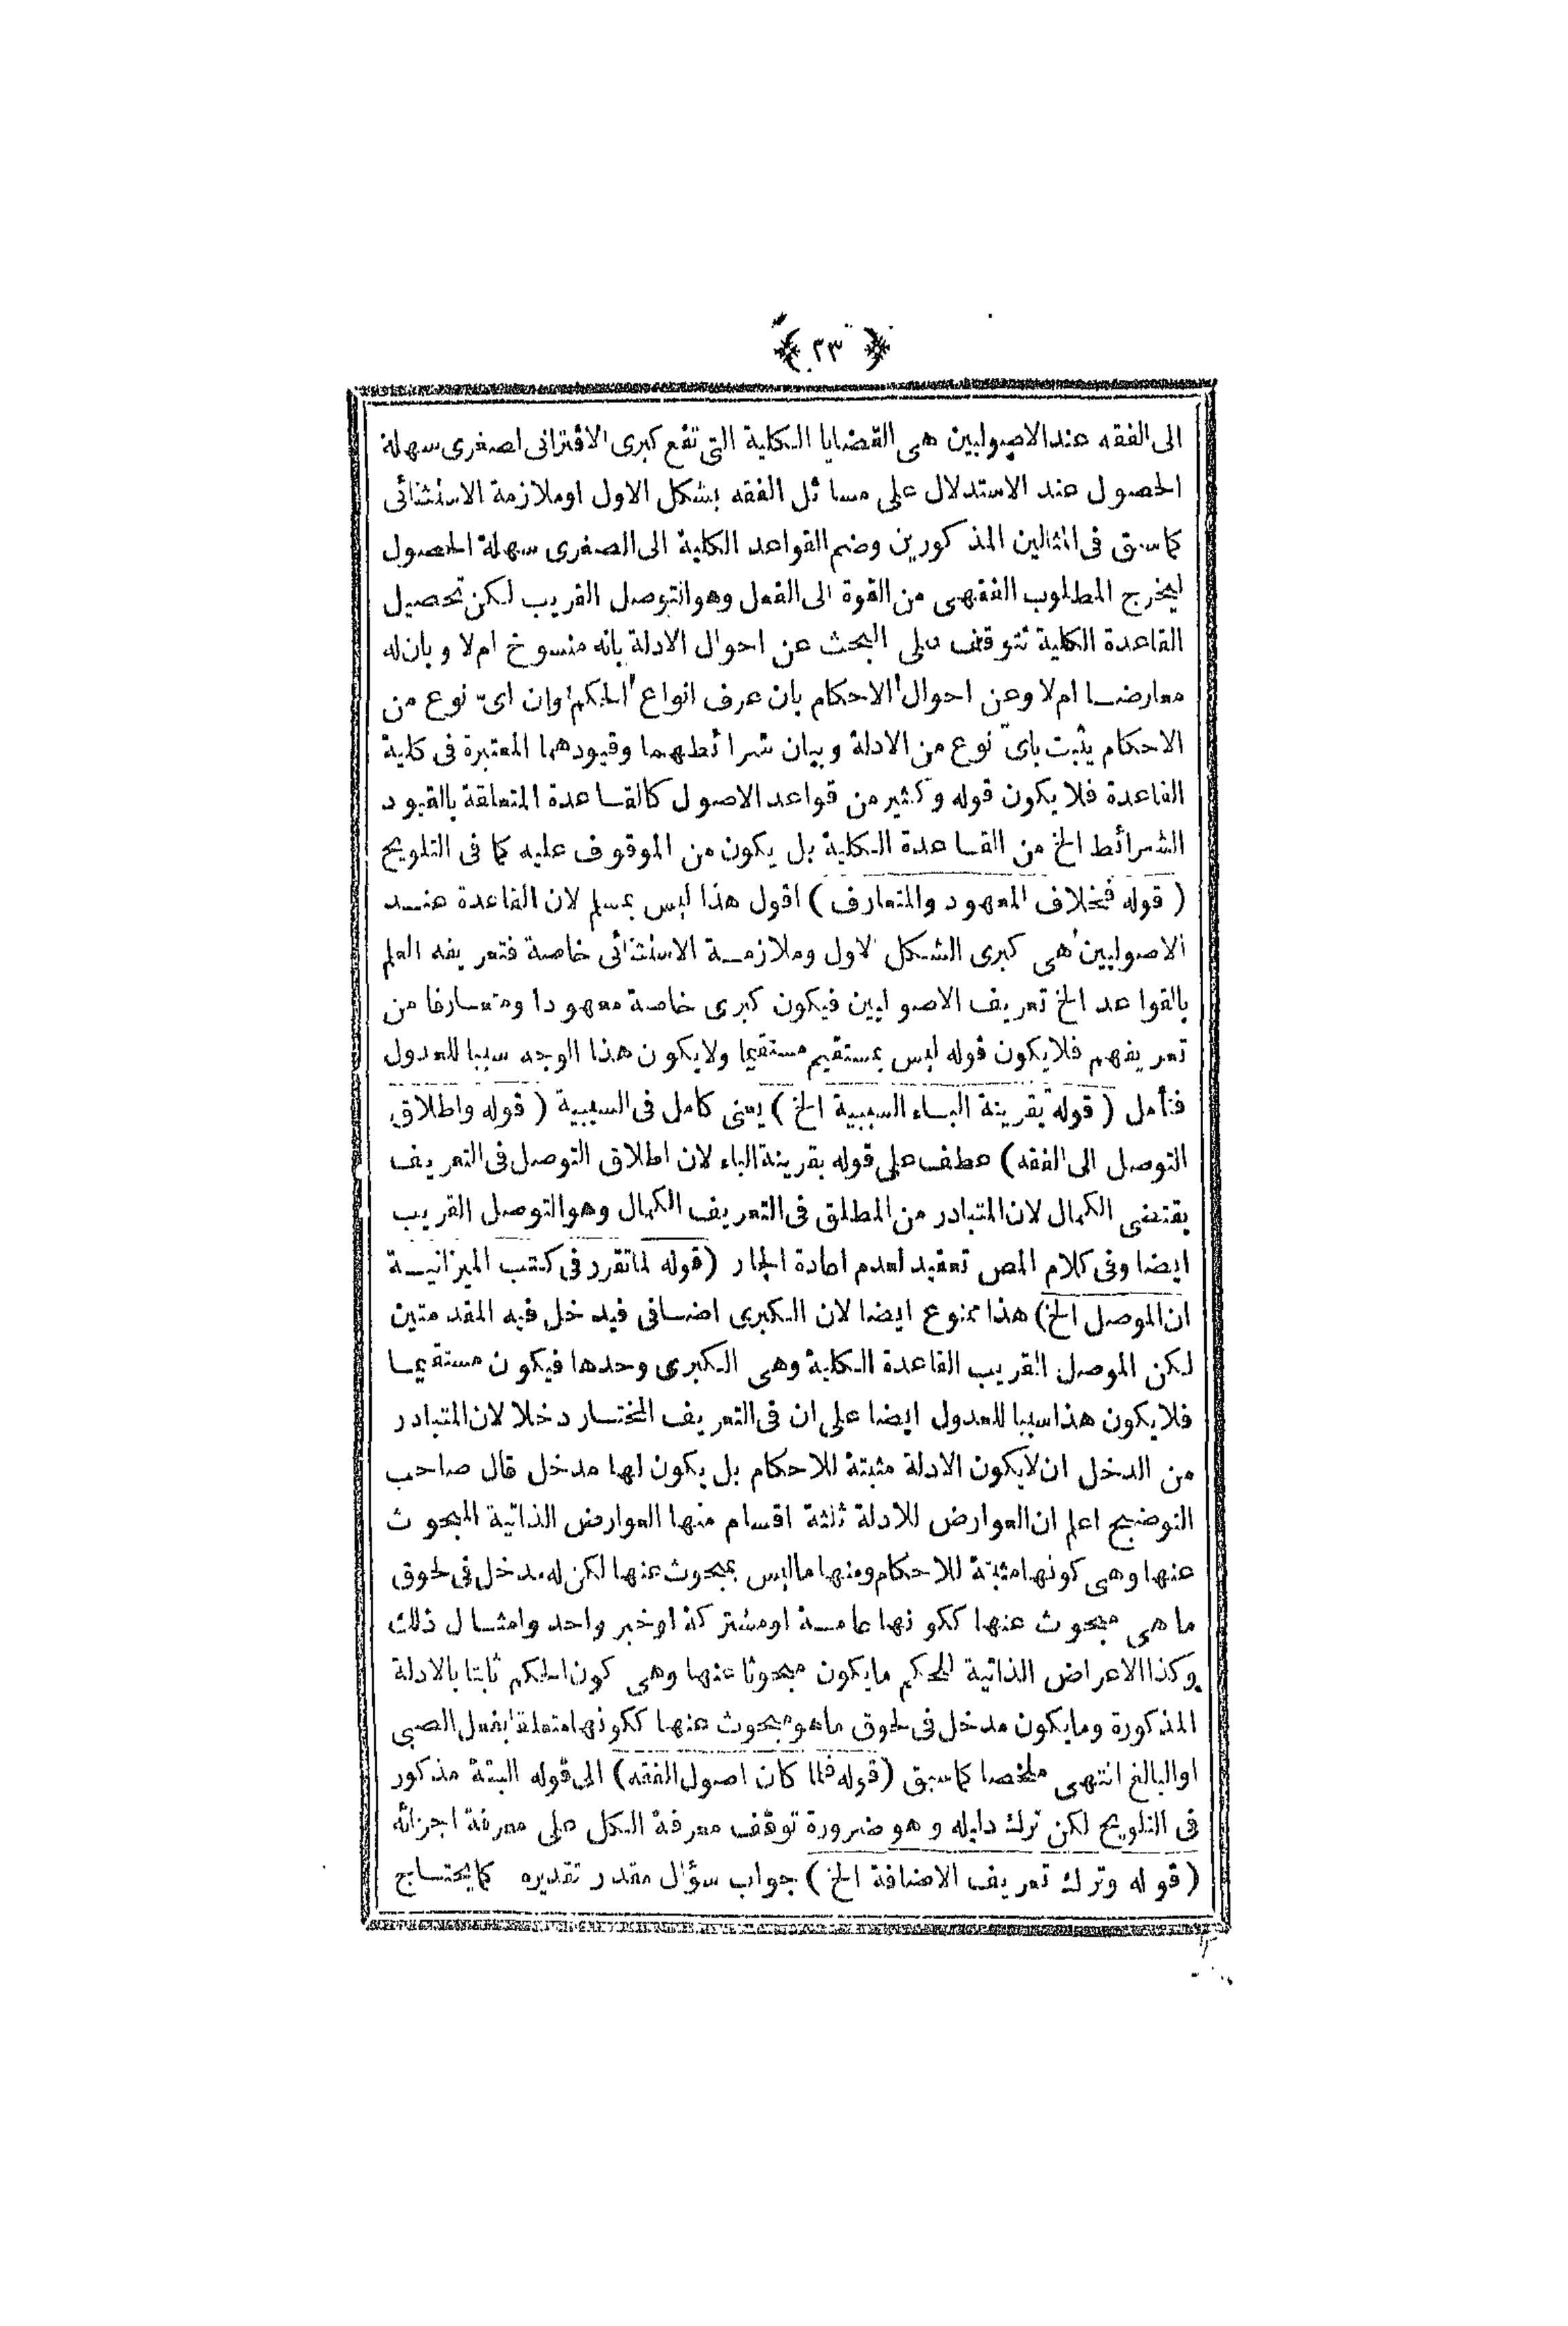 ﴿ ٢٣ ﴾
الى الفقه عند الاصوليين هى القضايا الكلية التى تقع كبرى الاقترانى لصغرى سهلة
الحصول عند الاستدلال على مسائل الفقه بشكل الاول او ملازمة الاستثنائى
كما سبق فى المثالين المذكورين وضم القواعد الكلية الى الصغرى سهلة الحصول
ليخرج المطلوب الفقهى من القوة الى الفعل وهو التوصل القريب لكن تحصيل
القاعدة الكلية تتوقف على البحث عن احوال الادلة بانه منسوخ ام لا وبان له
معارضا ام لا وعن احوال الاحكام بان عرف انواع الحكم وان اىّ نوع من
الاحكام يثبت باىّ نوع من الادلة وبيان شرائطهما وقيودهما المعتبرة فى كلية
القاعدة فلا يكون قوله وكثير من قواعد الاصول كالقاعدة المتعلقة بالقيود
الشرائط الخ من القاعدة الكلية بل يكون من الموقوف عليه كما فى التلويح
( قوله فبخلاف المعهود والمتعارف ) اقول هذا ليس بمسلم لان القاعدة عند
الاصوليين هى كبرى الشكل الاول وملازمة الاستثنائى خاصة فتعريفه العلم
بالقواعد الخ تعريف الاصوليين فيكون كبرى خاصة معهودا ومتعارفا من
تعريفهم فلا يكون قوله ليس بمستقيم مستقيما ولا يكون هذا الوجه سببا للعدول
فتأمل ( قوله بقرينة الباء السببية الخ ) يعنى كامل فى السببية ( قوله واطلاق
التوصل الى الفقه ) عطف على قوله بقرينة الباء لان اطلاق التوصل فى التعريف
يقتضى الكمال لان المتبادر من المطلق فى التعريف الكمال وهو التوصل القريب
ايضا وفى كلام المص تعقيد لعدم اعادة الجار ( قوله لما تقرر فى كتب الميزانية
ان الموصل الخ ) هذا ممنوع ايضا لان الكبرى اضافى فيدخل فيه المقدمتين
لكن الموصل القريب القاعدة الكلية وهى الكبرى وحدها فيكون مستقيما
فلا يكون هذا سببا للعدول ايضا على ان فى التعريف المختار دخلا لان المتبادر
من الدخل ان لا يكون الادلة مثبتة للاحكام بل يكون لها مدخل قال صاحب
التوضيح اعلم ان العوارض للادلة ثلثة اقسام منها العوارض الذاتية المبحوث
عنها وهى كونها مثبتة للاحكام ومنها ما ليس بمبحوث عنها لكن له مدخل فى لحوق
ما هى مبحوث عنها ككونها عامة او مشتركة او خبر واحد وامثال ذلك
وكذا الاعراض الذاتية للحكم ما يكون مبحوثا عنها وهى كون الحكم ثابتا بالادلة
المذكورة وما يكون مدخل فى لحوق ما هو مبحوث عنها ككونها متعلقة بفعل الصبى
او البالغ انتهى ملخصا كما سبق ( قوله فلما كان اصول الفقه ) الى قوله البتة مذكور
فى التلويح لكن ترك دليله وهو ضرورة توقف معرفة الكل على معرفة اجزائه
( قوله وترك تعريف الاضافة الخ ) جواب سؤال مقدر تقديره كما يحتاج